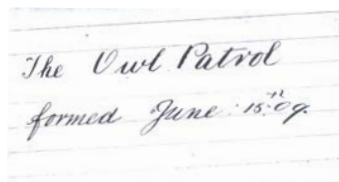 The Owl Patrol
formed June 15th 09.